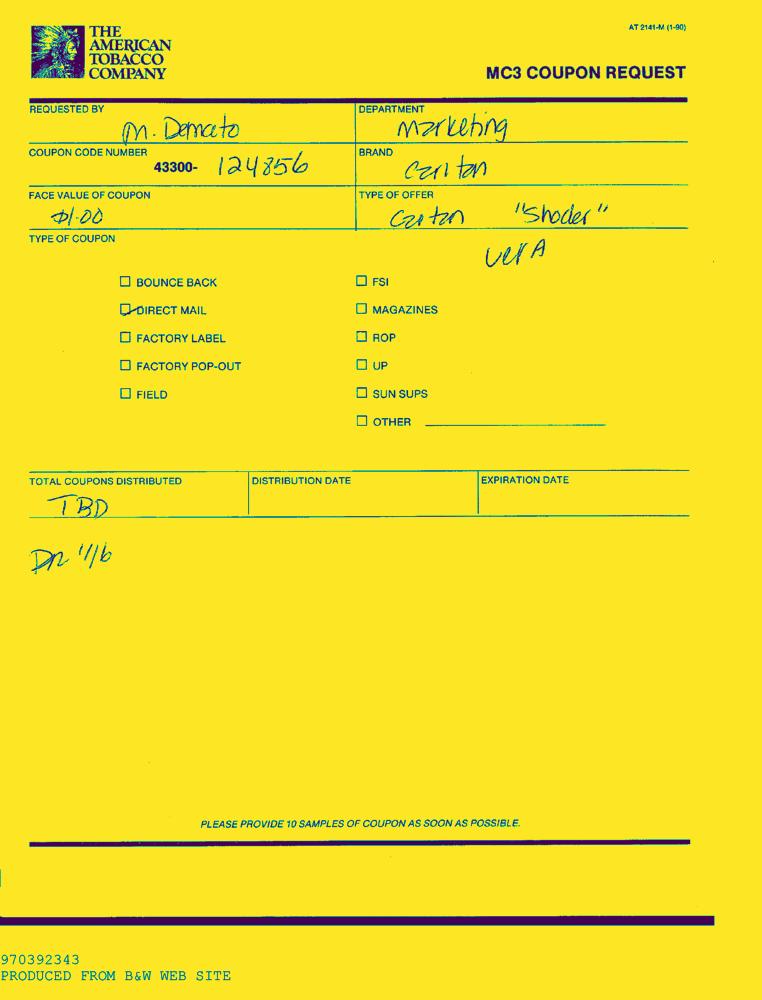 THE
AMERICAN
TOBACCO
COMPANY
AT 2141-M (1-90)
MC3 COUPON REQUEST
REQUESTED BY
M. Demato
DEPARTMENT
Marketing
COUPON CODE NUMBER
43300- 124856
BRAND
Carlton
FACE VALUE OF COUPON
$1.00
TYPE OF OFFER
Carton
Ver A
TYPE OF COUPON
BOUNCE BACK
FSI
DIRECT MAIL
MAGAZINES
FACTORY LABEL
ROP
FACTORY POP-OUT
UP
FIELD
SUN SUPS
OTHER
TOTAL COUPONS DISTRIBUTED
TBD
DISTRIBUTION DATE
EXPIRATION DATE
PLEASE PROVIDE 10 SAMPLES OF COUPON AS SOON AS POSSIBLE.
970392343
PRODUCED FROM B&W WEB SITE